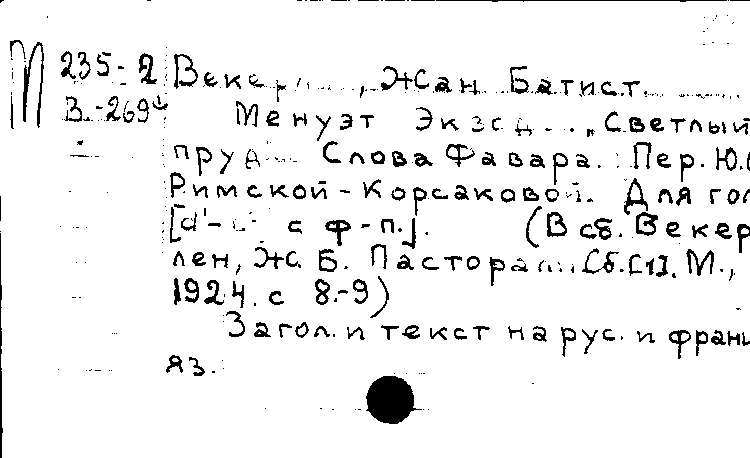 М 235-2 Векер..., Жан Батист.
В.-269 Менуэт Экзод... "Светлый
пруд" Слова Фавара. Пер. Ю.
Римской-Корсаковой. Для гол
[d'- с ф-п.]. (В сб. Векер
лен, Ж. Б. Пасторали. Сб. [1]. М.,
1924. с 8-9)
Загол. и текст на рус. и франц
яз.